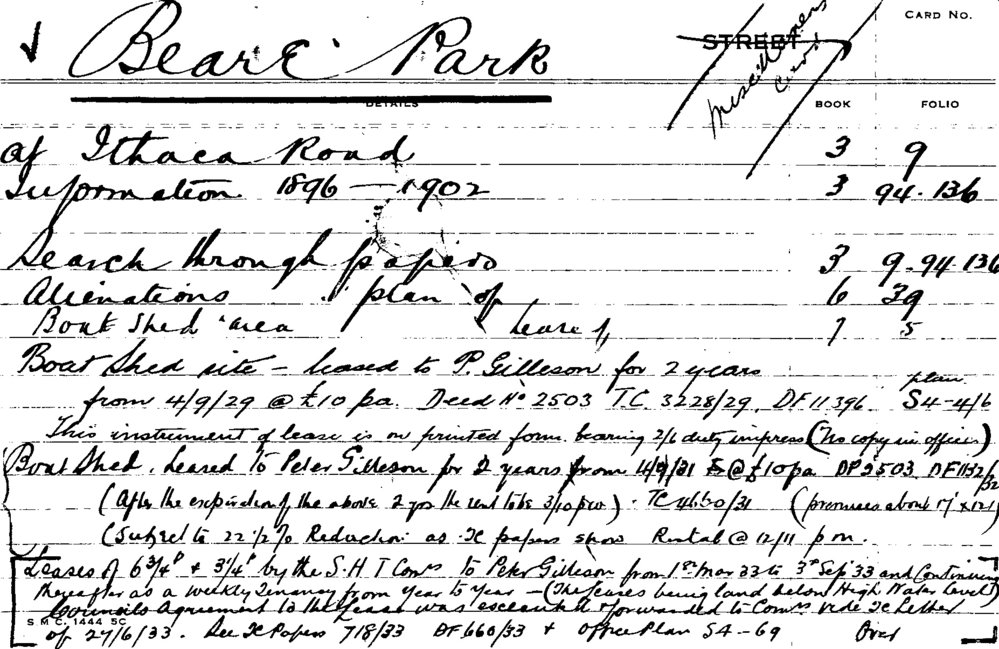 ✓ Beare Park
STREET
Miscellaneous
Card
CARD No.
DETAILS
BOOK FOLIO
of Ithaca Road 3 9
Information 1896 — 1902 3 94-136
Search through papers 3 9-94-136
Alienations plan of 6 39
Boat Shed area Lease of 7 5
Boat Shed site - leased to P. Gilleson for 2 years
from 4/9/29 @ £10 pa. Deed No 2503 T.C. 3228/29. DF 11396. plan S4-4/6
This instrument of lease is on printed form bearing 2/6 duty impress (No copy in office)
Boat Shed. Leased to Peter Gilleson for 2 years from 4/9/31 @ £10 pa DP 2503 DF 1132/32
(After the expiration of the above 2 yrs the rent to be 3/10 p.w.) TC 4660/31 (premises about 17' x 12')
(Subject to 22½% Reduction as TC papers show Rental @ 12/11 p m.
Leases of 6¾p & 3¼p by the S.H T Comrs to Peter Gilleson from 1st Mar 33 to 3rd Sep '33 and Continuing
thereafter as a weekly Tenancy from Year to Year - (The leases being land below High Water Level)
Councils Agreement to the Lease was executed & forwarded to Comrs vide TC Letter
S M C. 1444 5C
of 27/6/33. See TC Papers 718/33 DF 660/33 & Office Plan S4-69 Over